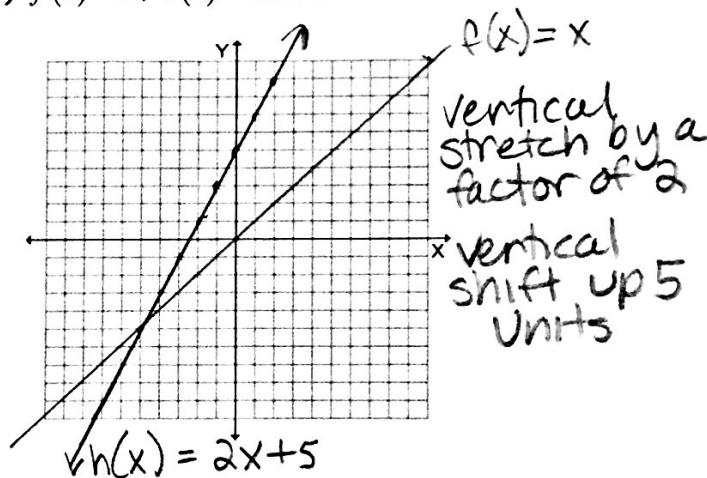 f(x) = x
vertical
stretch by a
factor of 2
Y
X
vertical
shift up 5
units
h(x) = 2x+5